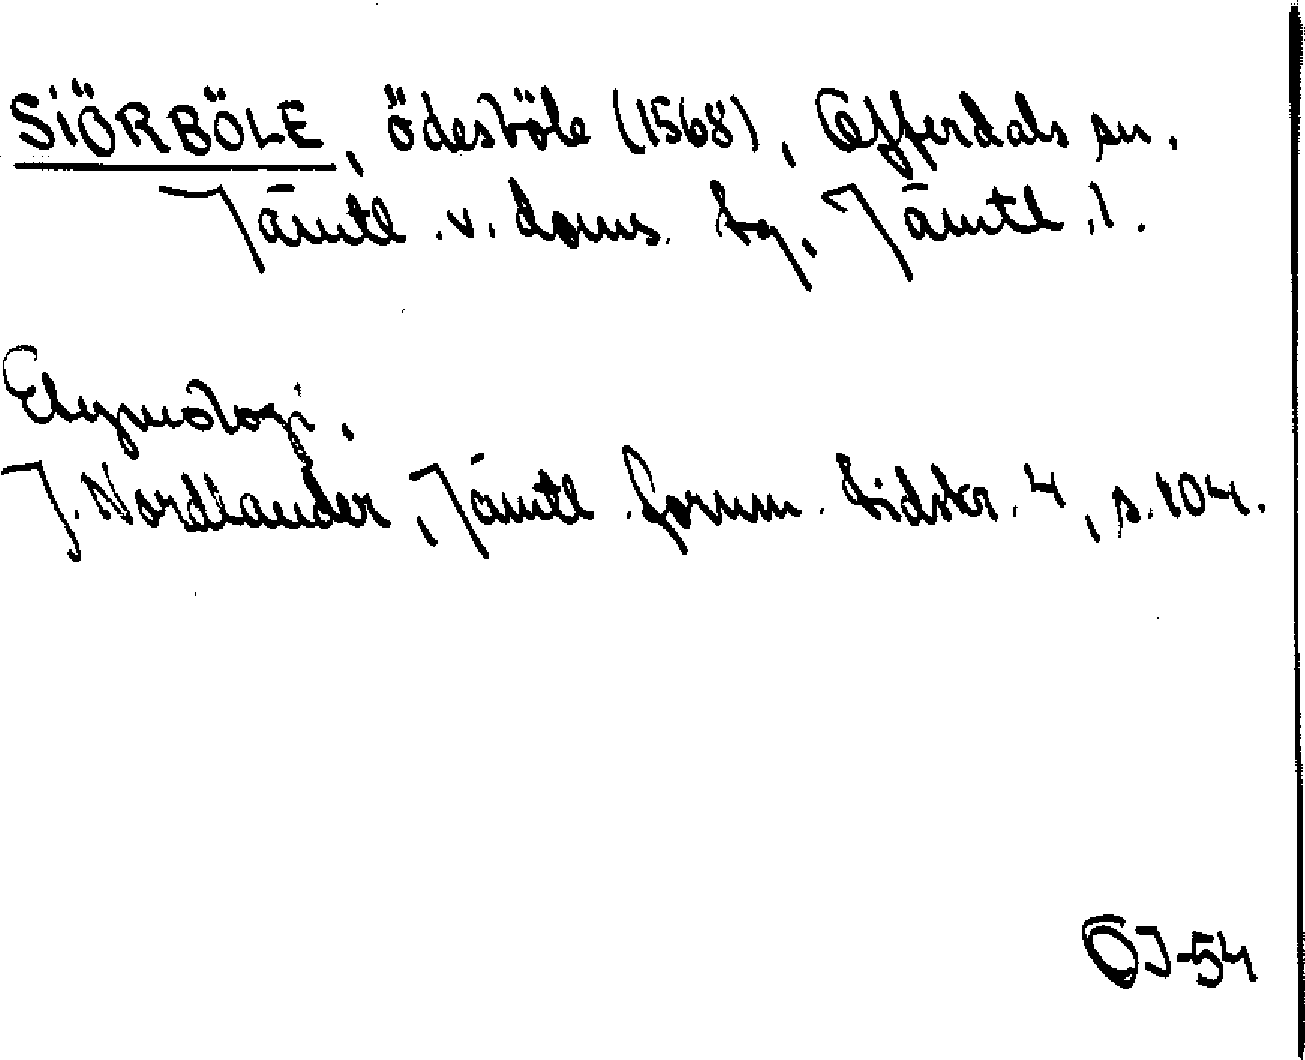 SIÖRBÖLE, ödesböle (1568), Offerdals sn.
Jämtl. v. doms. tg, Jämtl. l.
Etymologi.
J. Nordlander, Jämtl. fornm. tidskr. 4, s. 104.
ÖJ-54